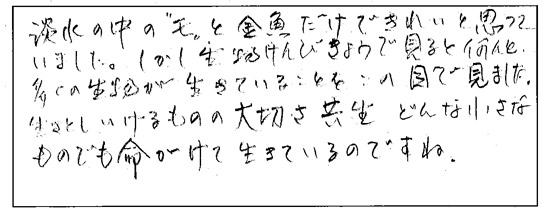 淡水の中の"モ"と金魚だけできれいと思って
いました。しかし生物けんびきょうで見ると何んと
多くの生物が生きていることをこの目で見ました。
生きとしいけるものの大切さ共生 どんな小さな
ものでも命がけで生きているのですね。